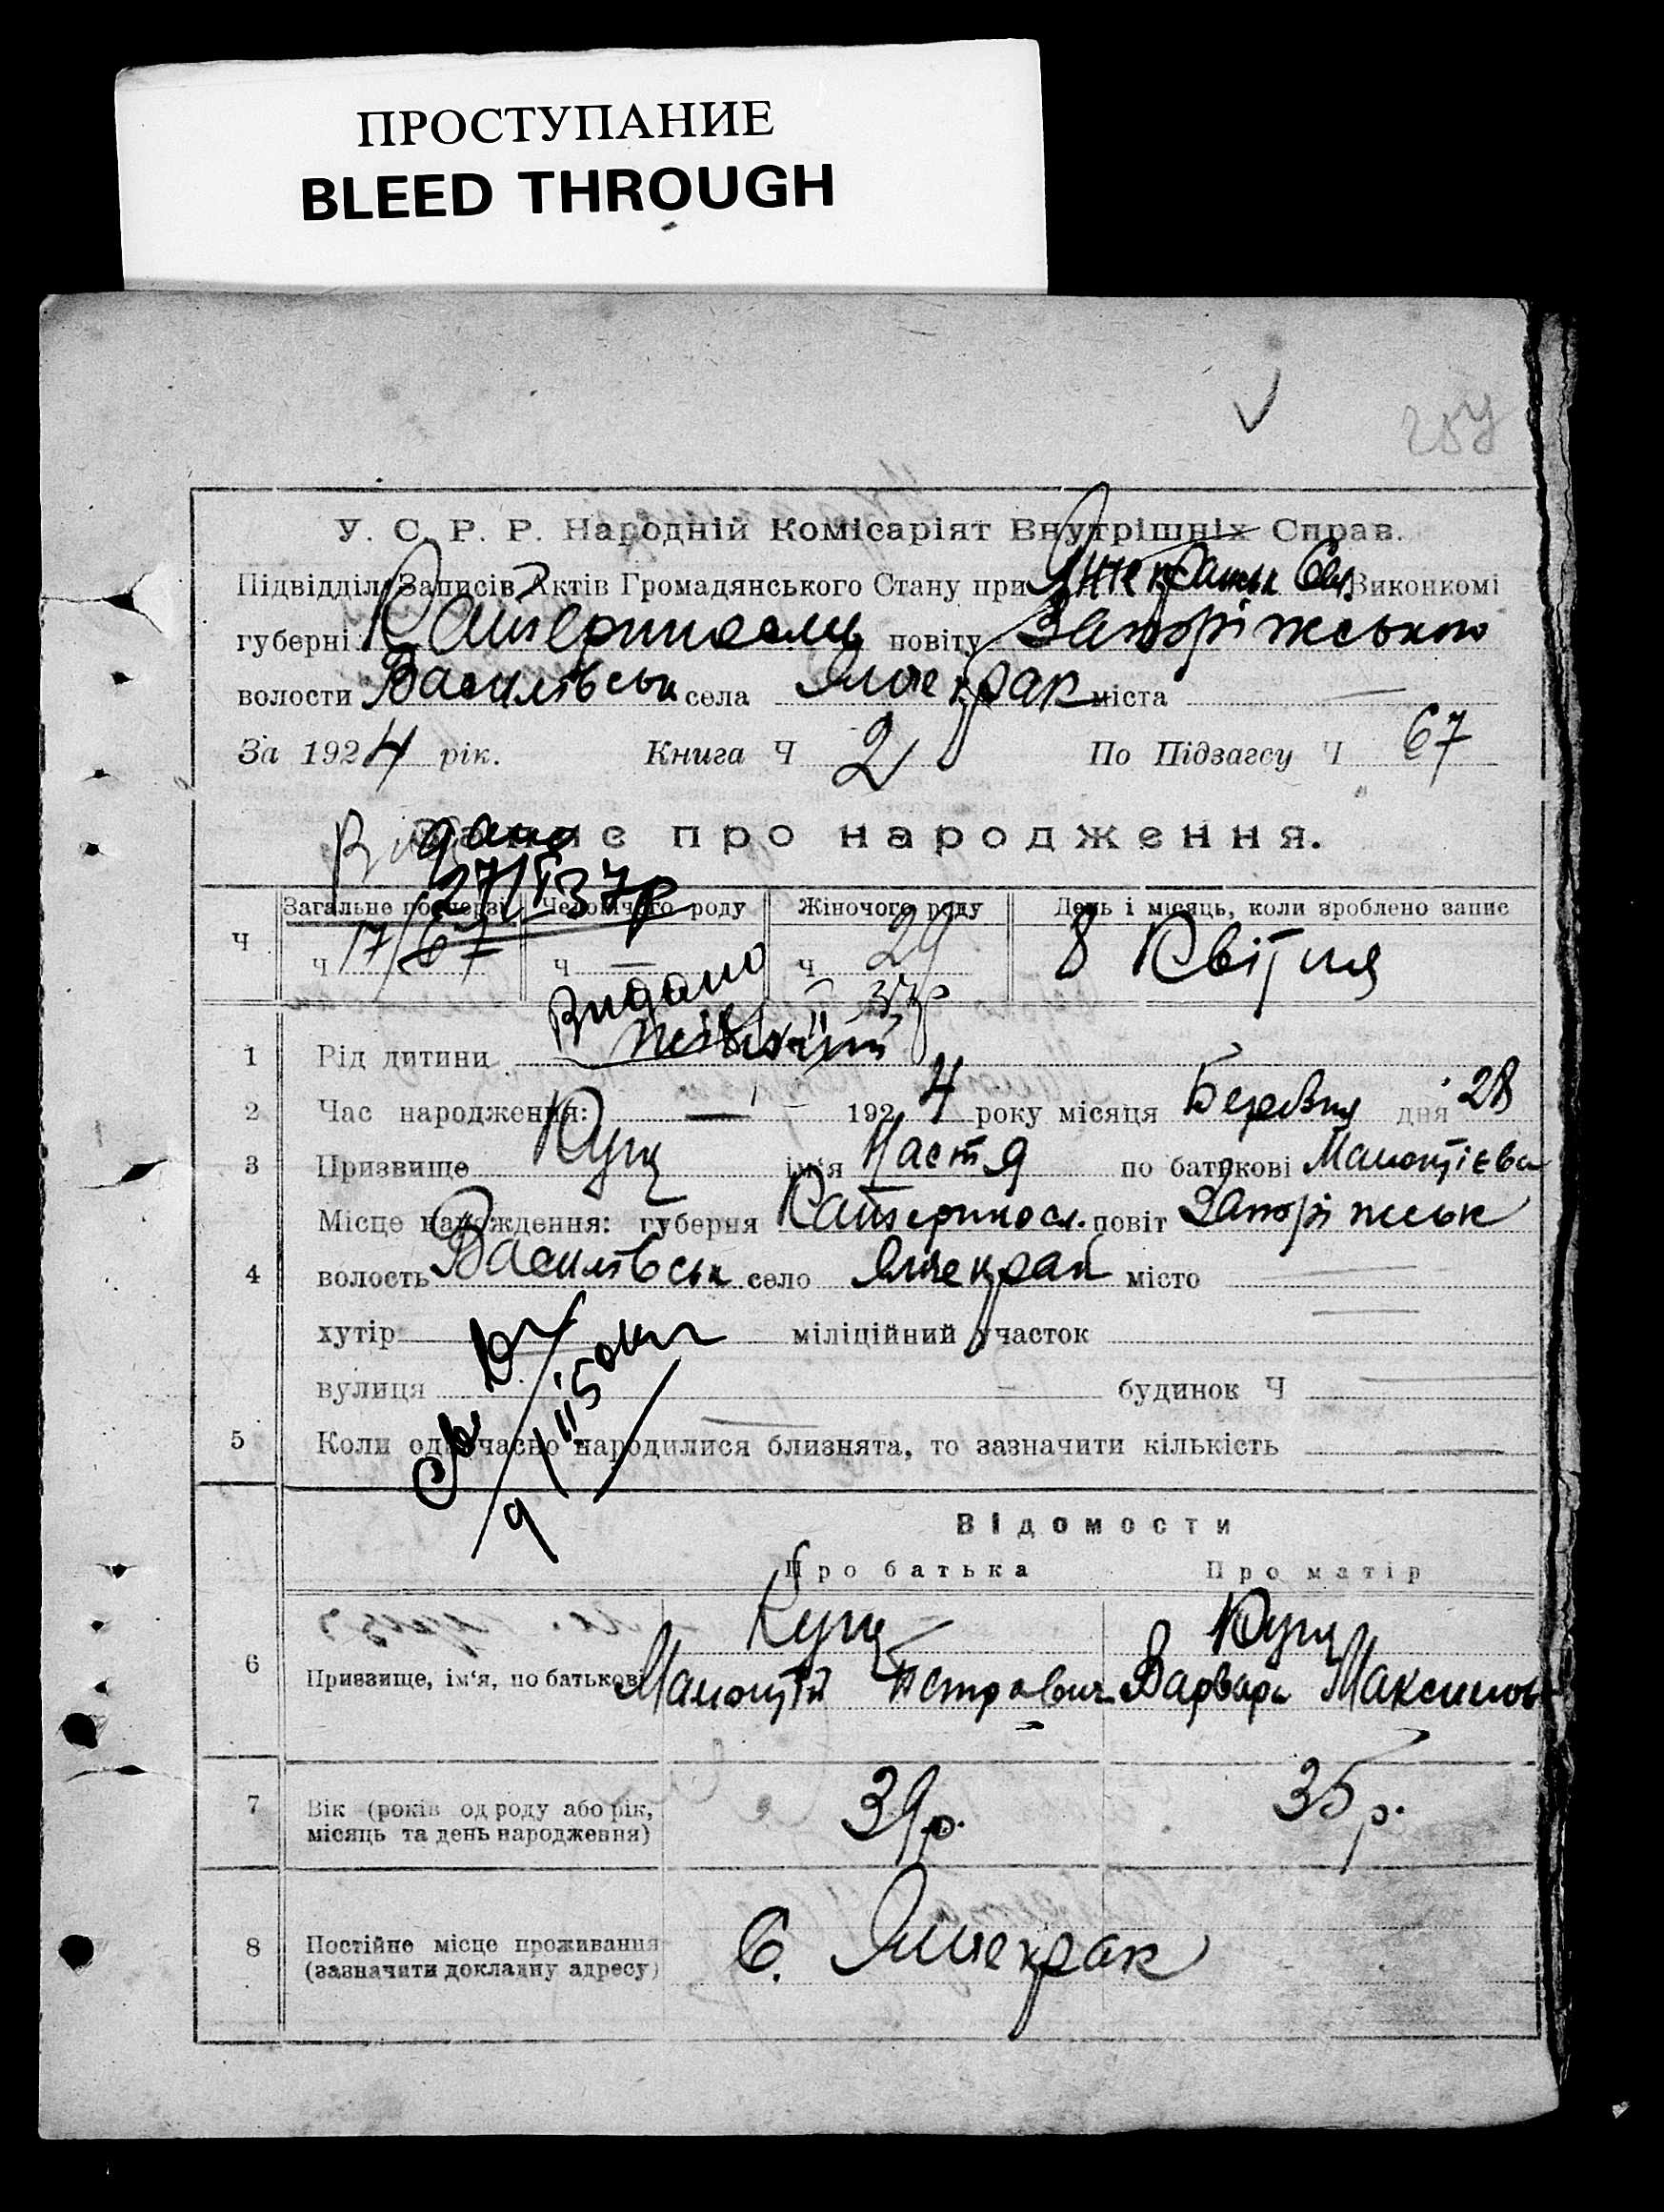 ПРОСТУПАНИЕ
BLEED THROUGH
У. С. Р. Р. Народній Комісаріят Внутрішніх Справ.
Підвідділ Записів Актів Громадянського Стану при Виконкомі
губерні Катеринослав повіту Запоріжського
волости Василівськ села Янчекрак міста —
За 1924 рік. Книга Ч 2 По Підзагсу Ч 67
Запис про народження.
Видано
Загальне по черзі Чоловічого роду Жіночого роду День і місяць, коли зроблено запис
Ч ч 17/67 ч — ч 29 8 Квітня
Видано
1 Рід дитини
2 Час народження: — 1924 року місяця Березня дня 28
3 Призвище Кущ ім'я Настя по батькові
Місце народження: губерня Катериносл. повіт Запоріжськ
4 волость Василівськ село Янчекрак місто —
хутір — міліційний участок —
вулиця — будинок Ч —
5 Коли одночасно народилися близнята, то зазначити кількість —
Відомости
Про батька Про матір
Кущ Кущ
6 Призвище, ім'я, по батькові Петрович Варвара Максимов
7 Вік (років од роду або рік, 39 р. 35 р.
місяць та день народження)
8 Постійне місце проживання С. Янчекрак
(зазначити докладну адресу)